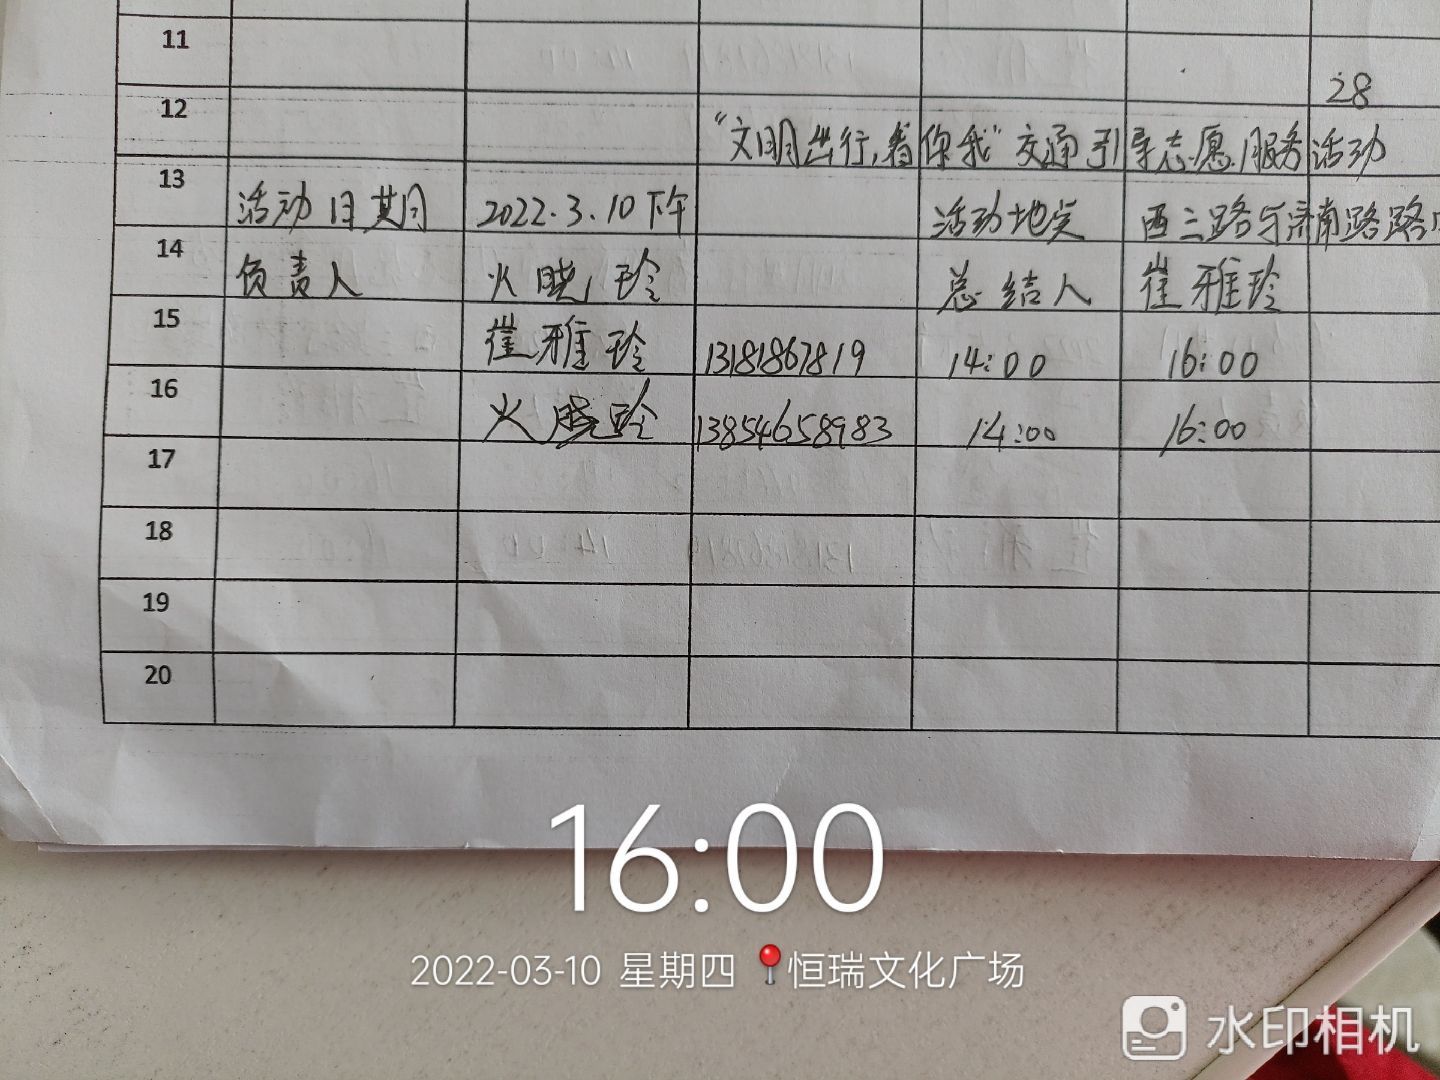 11
28
12 "文明出行,看你我"交通引导志愿服务活动
13 活动日期 2022.3.10下午 活动地点 西三路与济南路路
14 负责人 火晓玲 总结人 崔雅玲
15 崔雅玲 13181867819 14:00 16:00
16 火晓玲 13854658983 14:00 16:00
17
18
19
20
16:00
2022-03-10 星期四 恒瑞文化广场
水印相机